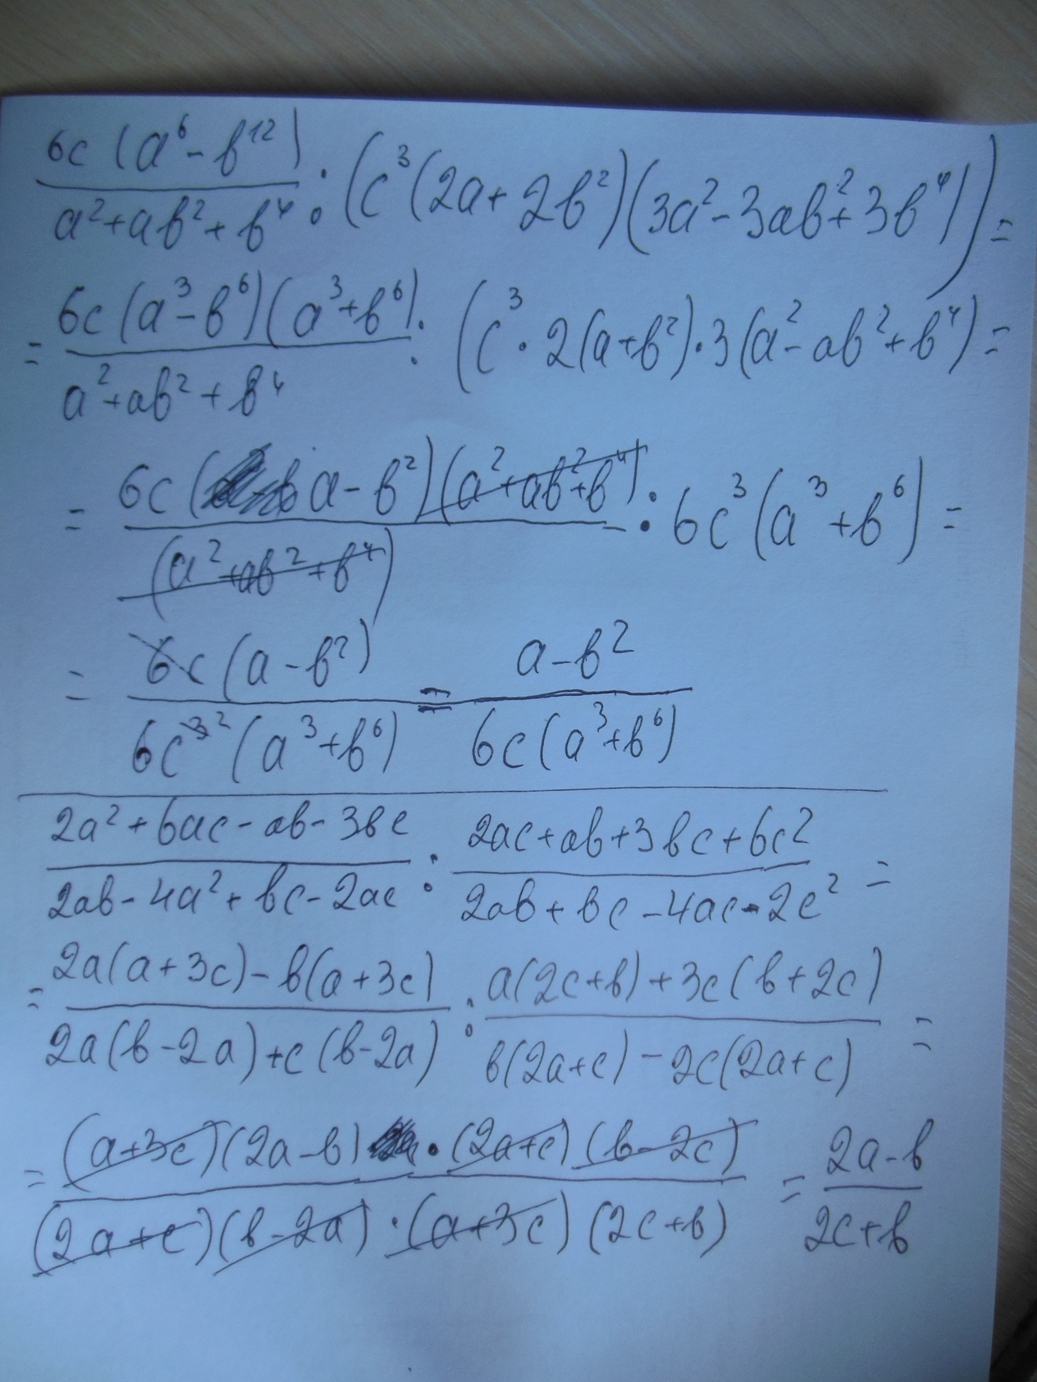 6c(a⁶-b¹²)/(a²+ab²+b⁴) : (c³(2a+2b²)(3a²-3ab²+3b⁴)) =
= 6c(a³-b⁶)(a³+b⁶)/(a²+ab²+b⁴) : (c³·2(a+b²)·3(a²-ab²+b⁴) =
= 6c(a-b²)(a²+ab²+b⁴)/(a²+ab²+b⁴) : 6c³(a³+b⁶) =
= 6c(a-b²)/(6c³ ²(a³+b⁶)) = (a-b²)/(6c(a³+b⁶))
(2a²+6ac-ab-3bc)/(2ab-4a²+bc-2ac) : (2ac+ab+3bc+6c²)/(2ab+bc-4ac-2c²) =
= (2a(a+3c)-b(a+3c))/(2a(b-2a)+c(b-2a)) : (a(2c+b)+3c(b+2c))/(b(2a+c)-2c(2a+c)) =
= (a+3c)(2a-b)·(2a+c)(b-2c)/((2a+c)(b-2a)·(a+3c)(2c+b)) = (2a-b)/(2c+b)